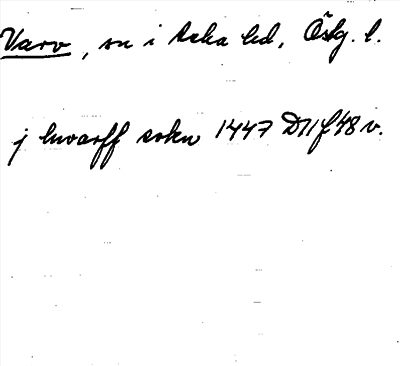 Varv, sn i Aska hd, Östg. l.
j hwarff sokn 1447 D11 f 48 v.